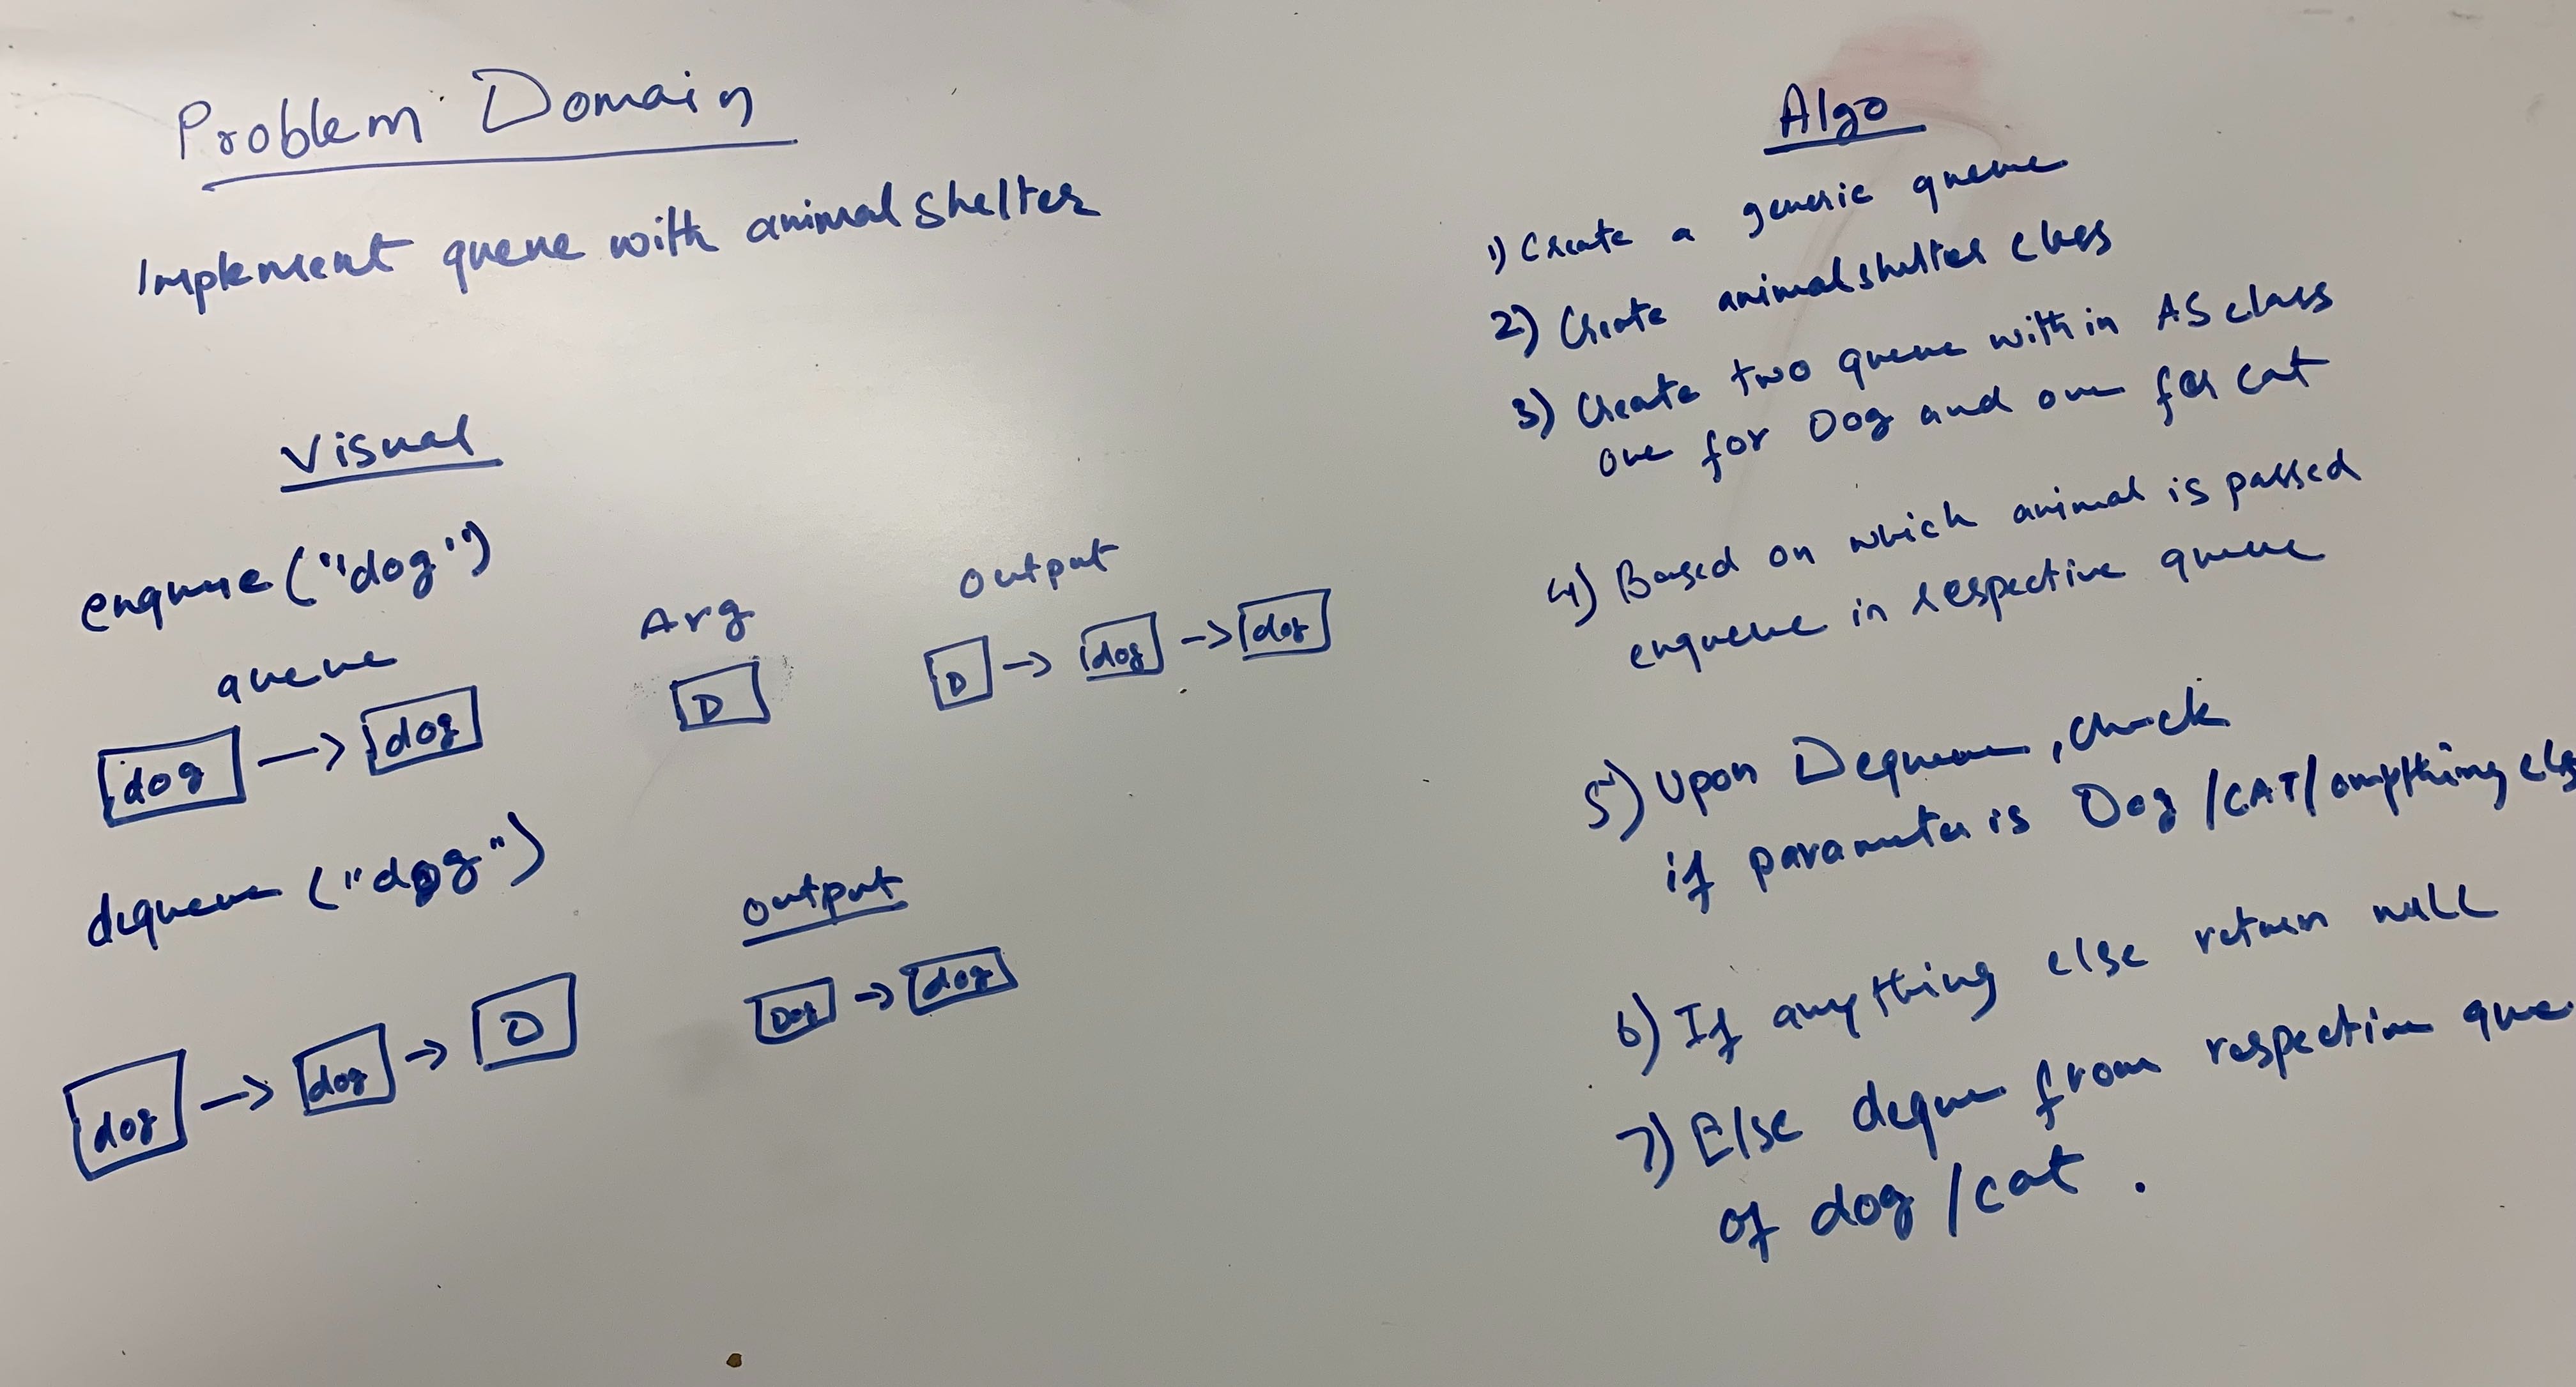 Problem Domain
Implement queue with animal shelter
Visual
enqueue ("dog")
queue
Arg
output
dog -> dog
D
D -> dog -> dog
dequeue ("dog")
output
dog -> dog -> D
Dog -> dog
Algo
1) Create a generic queue
2) Create animalshelter class
3) Create two queue within AS class
one for Dog and one for cat
4) Based on which animal is passed
enqueue in respective queue
5) Upon Dequeue, check
if parameter is Dog /CAT/ anything els
6) If anything else return null
7) Else deque from respective que
of dog /cat .